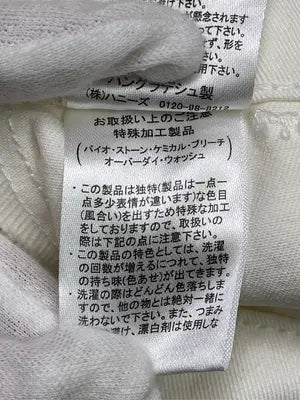 が懸念されます
って下さい。
ぜず、形を
用下さい。
バングラデシュ製
(株)ハニーズ 0120-98-8212
お取扱い上のご注意
特殊加工製品
(バイオ・ストーン・ケミカル・ブリーチ
オーバーダイ・ウォッシュ)
・この製品は独特(製品は一点一
点多少表情が違います)な色目
(風合い)を出すため特殊な加工
をしておりますので、取扱いの
際は下記の点に注意下さい。
・この製品の特色としては、洗濯
の回数が増えるにつれて、独特
の持ち味(色あせ)が出てきます。
・洗濯の際はどんどん色落ちしま
すので、他の物とは絶対一緒に
洗わないで下さい。また、シミ
漂白剤は使用しな